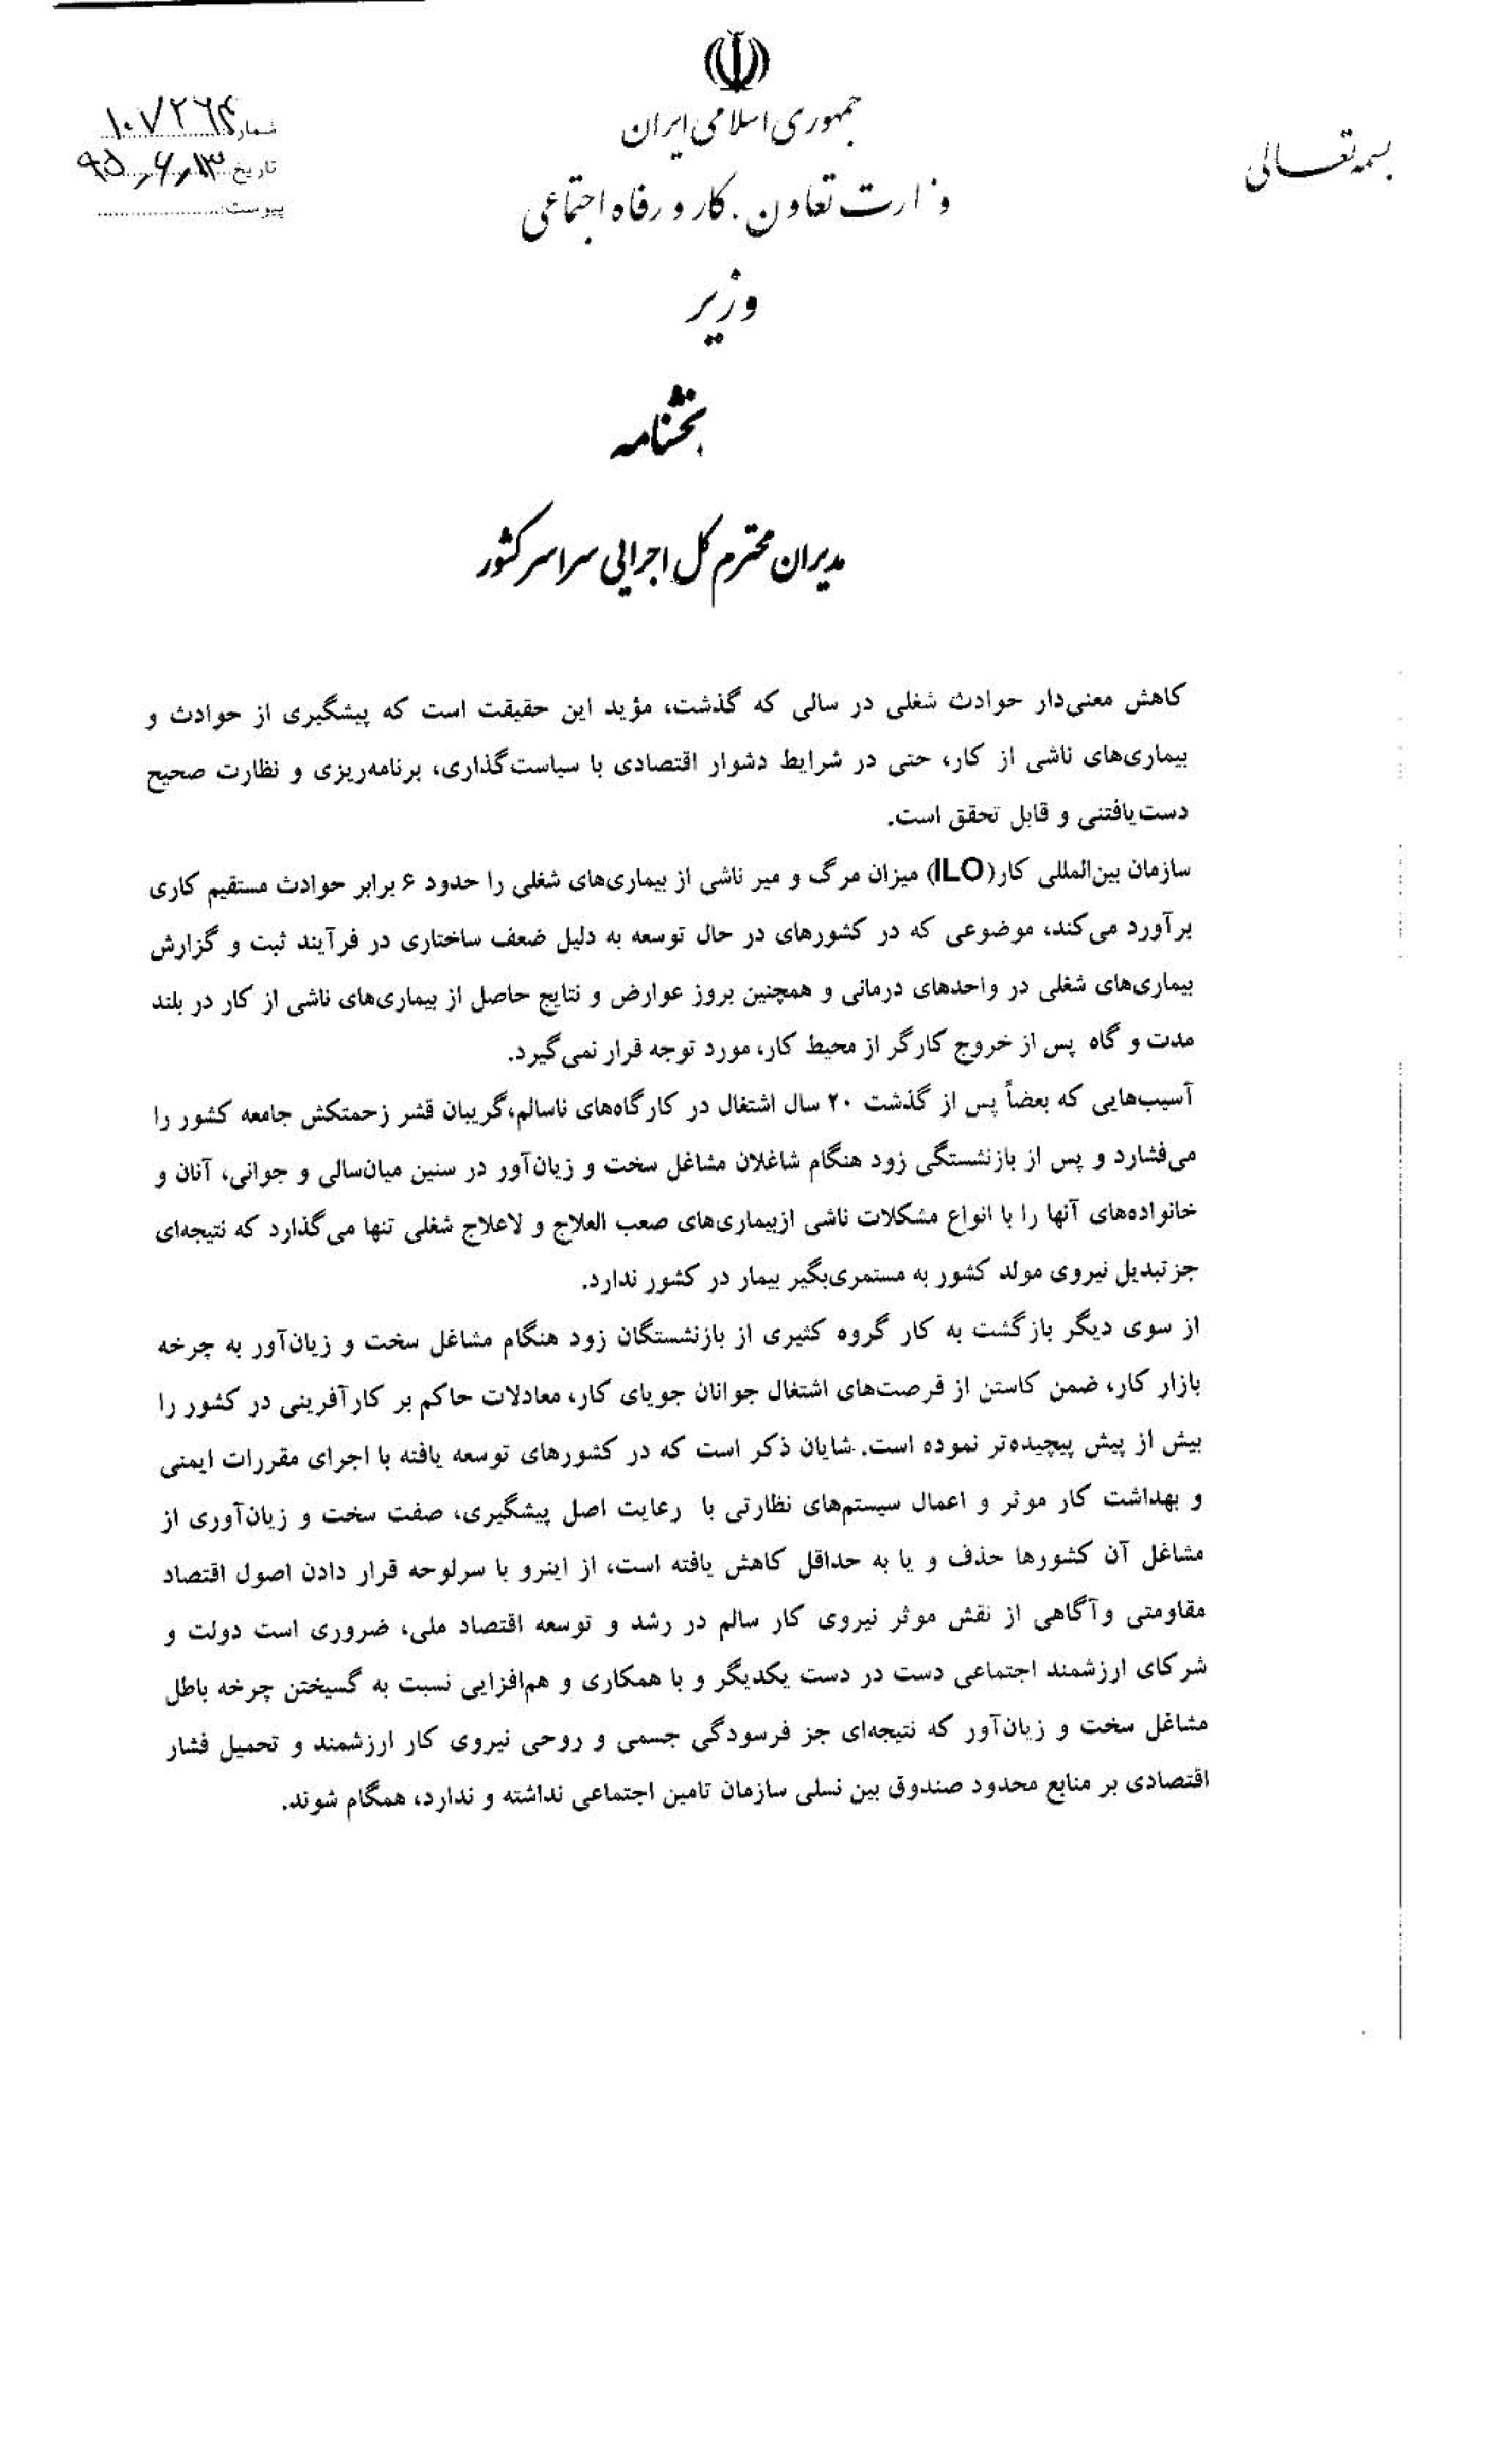 بسمه تعالی
جمهوری اسلامی ایران
وزارت تعاون، کار و رفاه اجتماعی
وزیر
شماره ۱۰۷۲۶۴
تاریخ ۹۵٫۶٫۱۳
پیوست:
بخشنامه
مدیران محترم کل اجرایی سراسر کشور
کاهش معنی‌دار حوادث شغلی در سالی که گذشت، مؤید این حقیقت است که پیشگیری از حوادث و
بیماری‌های ناشی از کار، حتی در شرایط دشوار اقتصادی با سیاست‌گذاری، برنامه‌ریزی و نظارت صحیح
دست‌یافتنی و قابل تحقق است.
سازمان بین‌المللی کار(ILO) میزان مرگ و میر ناشی از بیماری‌های شغلی را حدود ۶ برابر حوادث مستقیم کاری
برآورد می‌کند، موضوعی که در کشورهای در حال توسعه به دلیل ضعف ساختاری در فرآیند ثبت و گزارش
بیماری‌های شغلی در واحدهای درمانی و همچنین بروز عوارض و نتایج حاصل از بیماری‌های ناشی از کار در بلند
مدت و گاه پس از خروج کارگر از محیط کار، مورد توجه قرار نمی‌گیرد.
آسیب‌هایی که بعضاً پس از گذشت ۲۰ سال اشتغال در کارگاه‌های ناسالم،گریبان قشر زحمتکش جامعه کشور را
می‌فشارد و پس از بازنشستگی زود هنگام شاغلان مشاغل سخت و زیان‌آور در سنین میان‌سالی و جوانی، آنان و
خانواده‌های آنها را با انواع مشکلات ناشی ازبیماری‌های صعب العلاج و لاعلاج شغلی تنها می‌گذارد که نتیجه‌ای
جز تبدیل نیروی مولد کشور به مستمری‌بگیر بیمار در کشور ندارد.
از سوی دیگر بازگشت به کار گروه کثیری از بازنشستگان زود هنگام مشاغل سخت و زیان‌آور به چرخه
بازار کار، ضمن کاستن از فرصت‌های اشتغال جوانان جویای کار، معادلات حاکم بر کارآفرینی در کشور را
بیش از پیش پیچیده‌تر نموده است. شایان ذکر است که در کشورهای توسعه یافته با اجرای مقررات ایمنی
و بهداشت کار موثر و اعمال سیستم‌های نظارتی با رعایت اصل پیشگیری، صفت سخت و زیان‌آوری از
مشاغل آن کشورها حذف و یا به حداقل کاهش یافته است، از اینرو با سرلوحه قرار دادن اصول اقتصاد
مقاومتی وآگاهی از نقش موثر نیروی کار سالم در رشد و توسعه اقتصاد ملی، ضروری است دولت و
شرکای ارزشمند اجتماعی دست در دست یکدیگر و با همکاری و هم‌افزایی نسبت به گسیختن چرخه باطل
مشاغل سخت و زیان‌آور که نتیجه‌ای جز فرسودگی جسمی و روحی نیروی کار ارزشمند و تحمیل فشار
اقتصادی بر منابع محدود صندوق بین نسلی سازمان تامین اجتماعی نداشته و ندارد، همگام شوند.